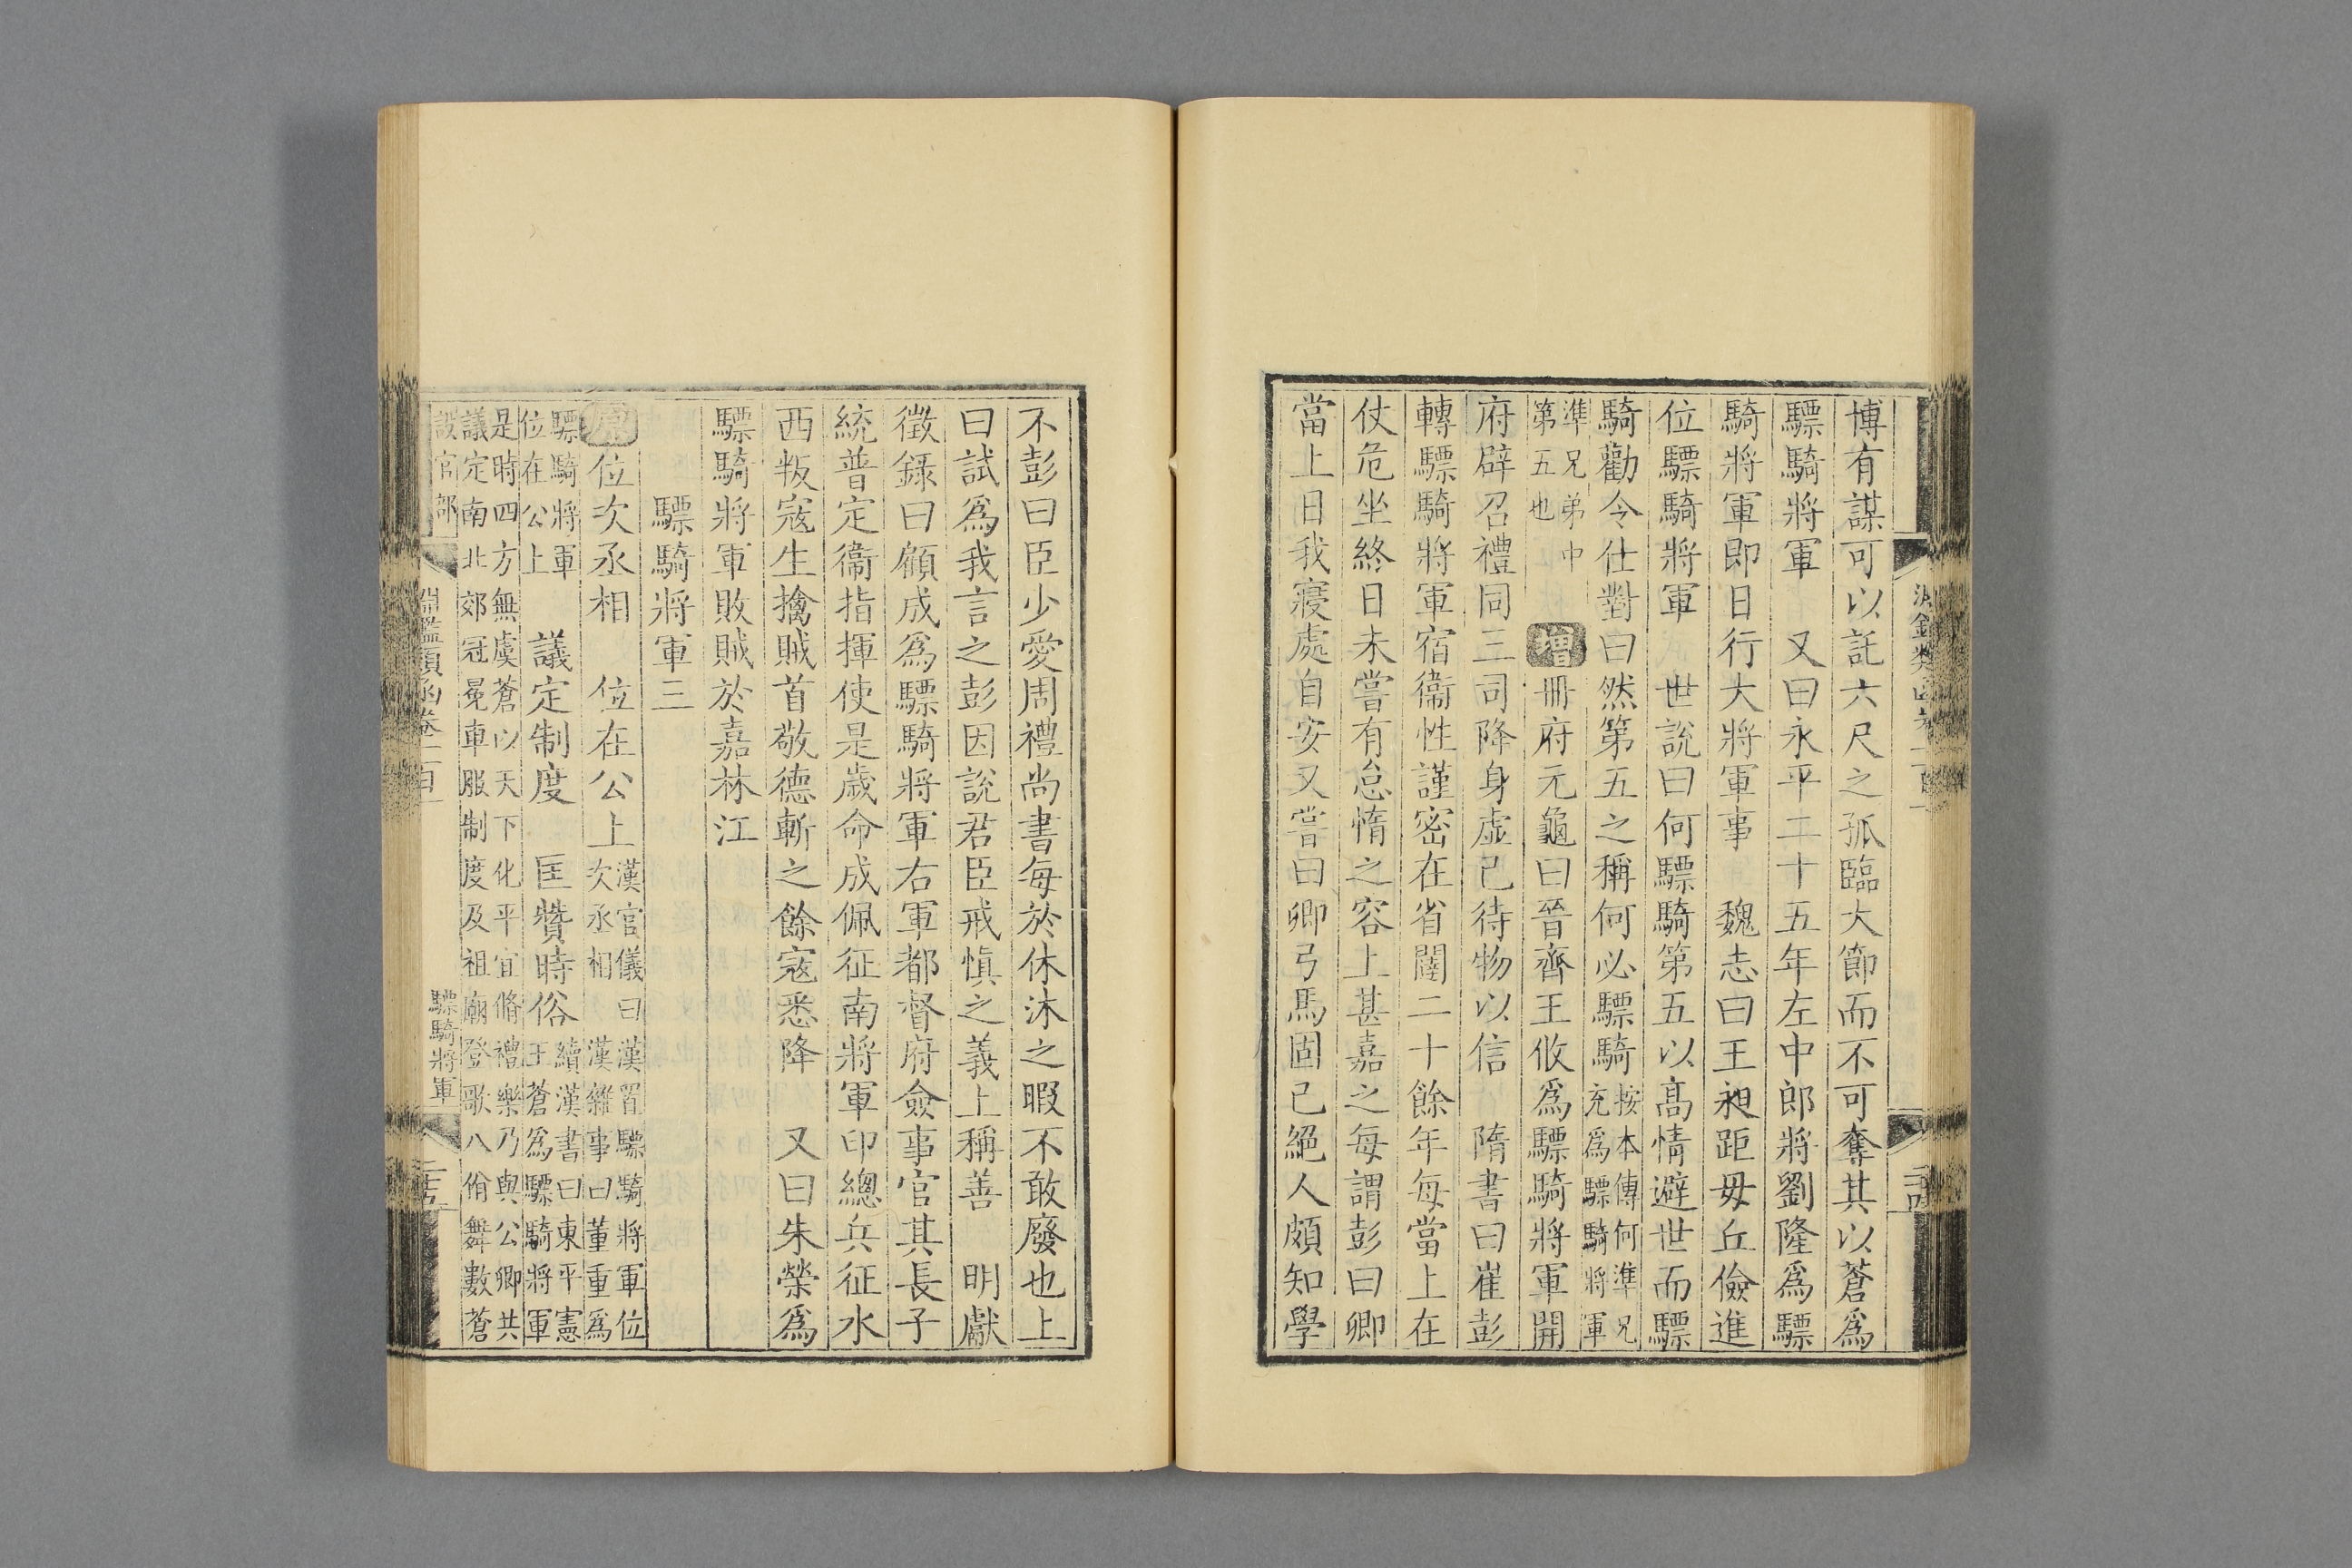 博有謀可以託六尺之孤臨大節而不可奪其以蒼為
驃騎將軍　又曰永平二十五年左中郎將劉隆為驃
騎將軍即日行大將軍事　魏志曰王昶距毋丘儉進
位驃騎將軍　世說曰何驃騎第五以高情避世而驃
騎勸令仕對曰然第五之稱何必驃騎按本傳何準兄充為驃騎將軍
準兄弟中第五也　增冊府元龜曰晉齊王攸為驃騎將軍開
府辟召禮同三司降身虛己待物以信　隋書曰崔彭
轉驃騎將軍宿衛性謹密在省闥二十餘年每當上在
仗危坐終日未嘗有怠惰之容上甚嘉之每謂彭曰卿
當上日我寢處自安又嘗曰卿弓馬固已絕人頗知學
不彭曰臣少愛周禮尚書每於休沐之暇不敢廢也上
曰試為我言之彭因說君臣戒愼之義上稱善　明獻
徵錄曰顧成為驃騎將軍右軍都督府僉事官其長子
統普定衞指揮使是歲命成佩征南將軍印總兵征水
西叛寇生擒賊首敬德斬之餘寇悉降　又曰朱榮為
驃騎將軍敗賊於嘉林江
驃騎將軍三
原位次丞相　位在公上漢官儀曰漢置驃騎將軍位次丞相　漢雜事曰董重為
驃騎將軍位在公上　議定制度　匡贊時俗續漢書曰東平憲王蒼為驃騎將軍
是時四方無虞蒼以天下化平宜脩禮樂乃與公卿共議定南北郊冠冕車服制度及祖廟登歌八佾舞數蒼
設官部　淵鑑類函卷一百　驃騎將軍　二十五